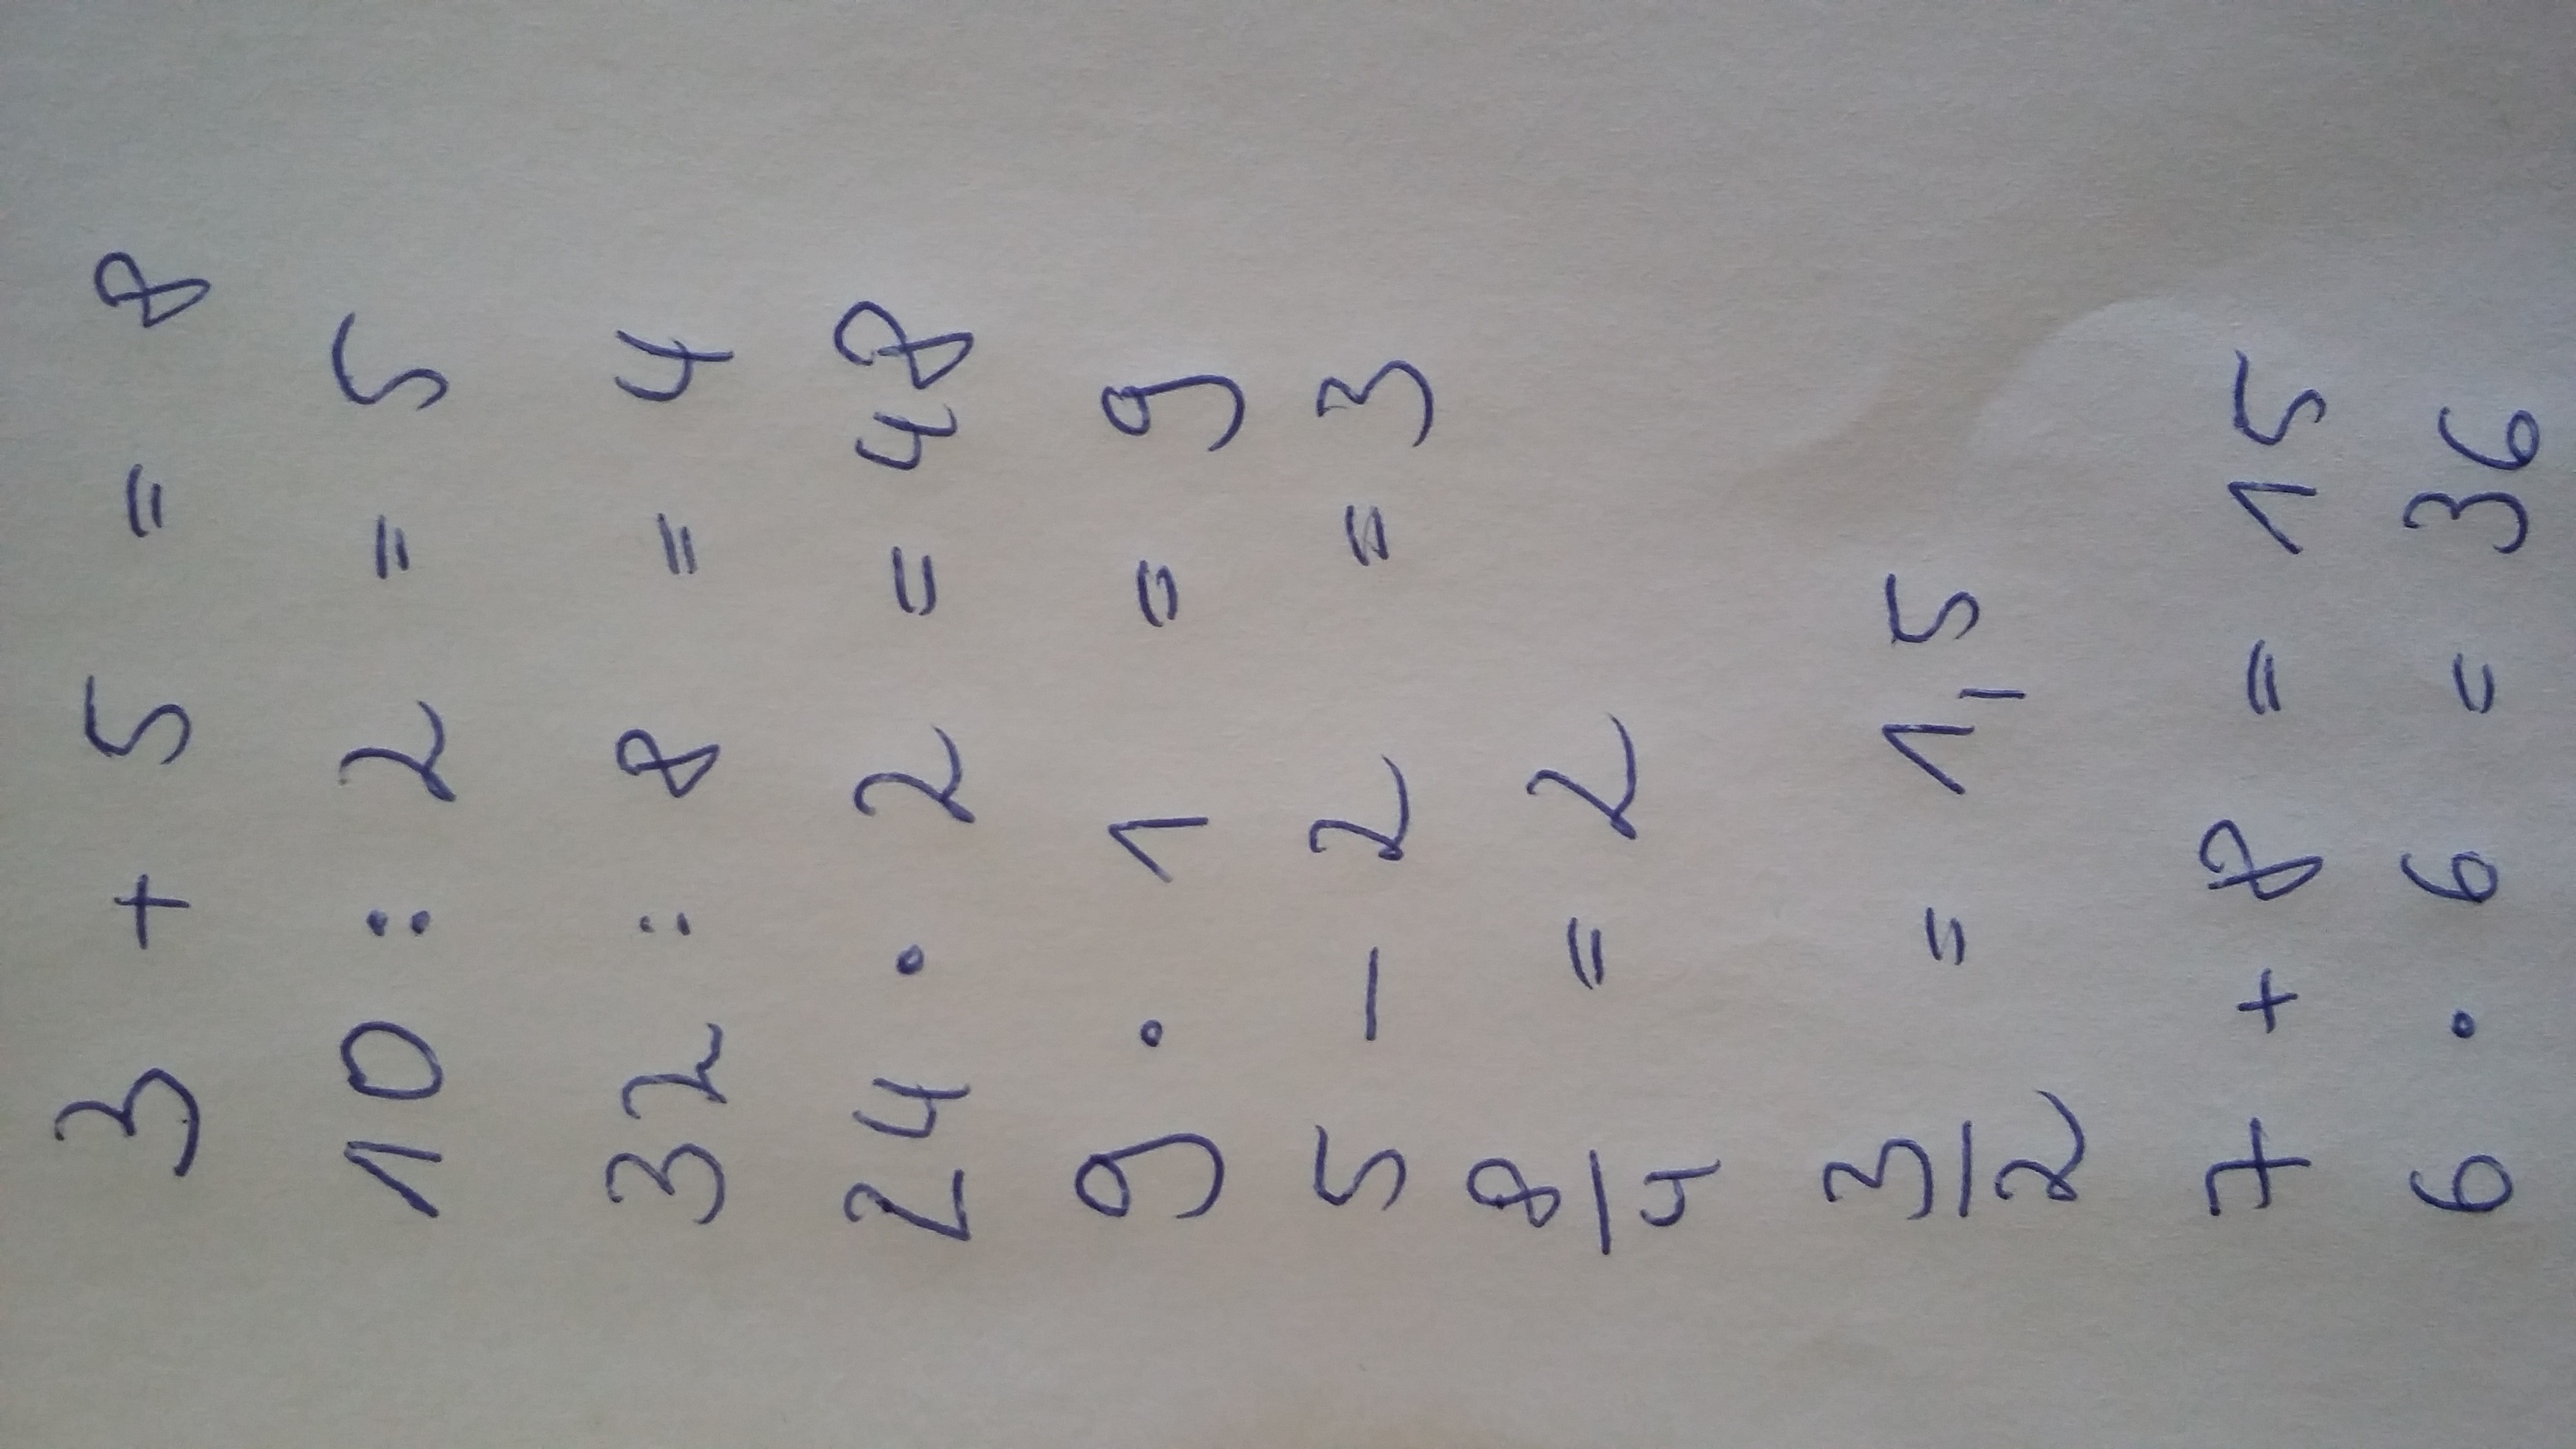 3 + 5 = 8
10 : 2 = 5
32 : 8 = 4
24 · 2 = 48
9 · 1 = 9
5 - 2 = 3
8/4 = 2
3/2 = 1,5
7 + 8 = 15
6 · 6 = 36